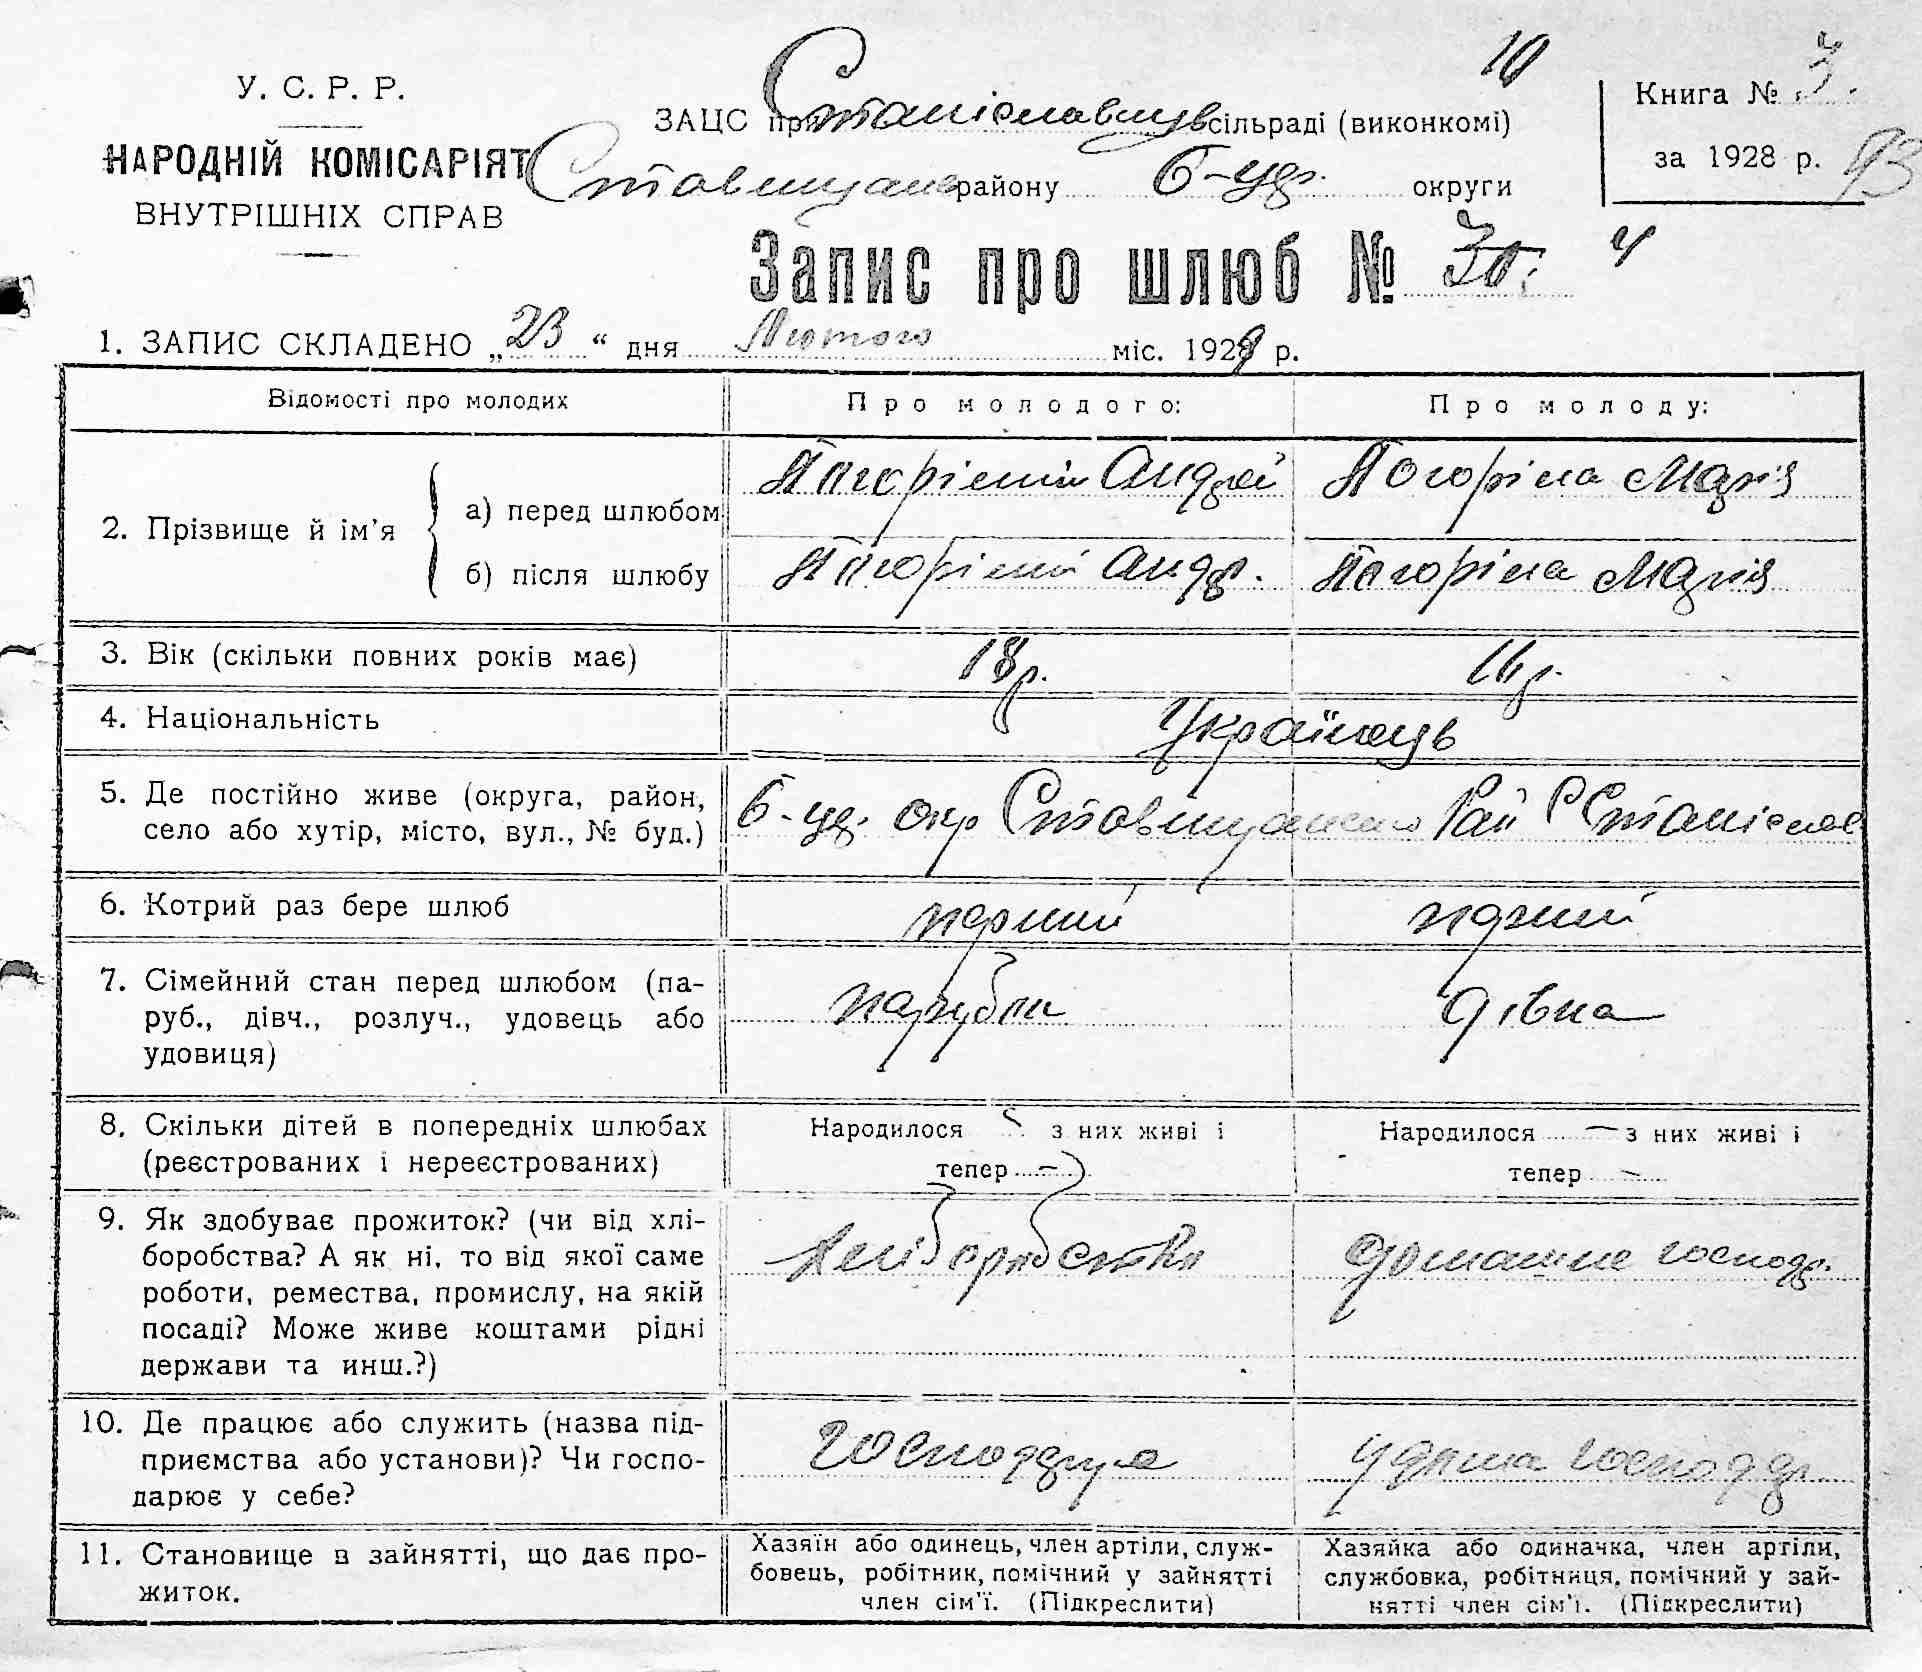 У. С. Р. Р.
НАРОДНІЙ КОМІСАРІЯТ
ВНУТРІШНІХ СПРАВ
10
ЗАЦС при Станіславчув сільраді (виконкомі)
Ставищанс району Б-цер. округи
Книга № 3.
за 1928 р. 93
Запис про шлюб № 30. 4
1. ЗАПИС СКЛАДЕНО „23“ дня Лютого міс. 1929 р.
Відомості про молодих
Про молодого:
Про молоду:
2. Прізвище й ім'я
а) перед шлюбом
Погорілий Андрей
Погоріла Марія
б) після шлюбу
Погорілий Андр.
Погоріла Марія
3. Вік (скільки повних років має)
18 р.
16 р.
4. Національність
Українець
5. Де постійно живе (округа, район,
село або хутір, місто, вул., № буд.)
Б-це. окр Ставищанско Рай С Станіслав
6. Котрий раз бере шлюб
перший
перший
7. Сімейний стан перед шлюбом (па-
руб., дівч., розлуч., удовець або
удовиця)
парубок
дівка
8. Скільки дітей в попередніх шлюбах
(реєстрованих і нереєстрованих)
Народилося – з них живі і
тепер –
Народилося – з них живі і
тепер –
9. Як здобуває прожиток? (чи від хлі-
боробства? А як ні, то від якої саме
роботи, ремества, промислу, на якій
посаді? Може живе коштами рідні
держави та инш.?)
Хліборобство
домашне господр.
10. Де працює або служить (назва під-
приємства або установи)? Чи госпо-
дарює у себе?
Господарує
удома господар
11. Становище в зайнятті, що дає про-
житок.
Хазяїн або одинець, член артіли, служ-
бовець, робітник, помічний у зайнятті
член сім'ї. (Підкреслити)
Хазяйка або одиначка, член артіли,
службовка, робітниця, помічний у зай-
нятті член сім'ї. (Підкреслити)